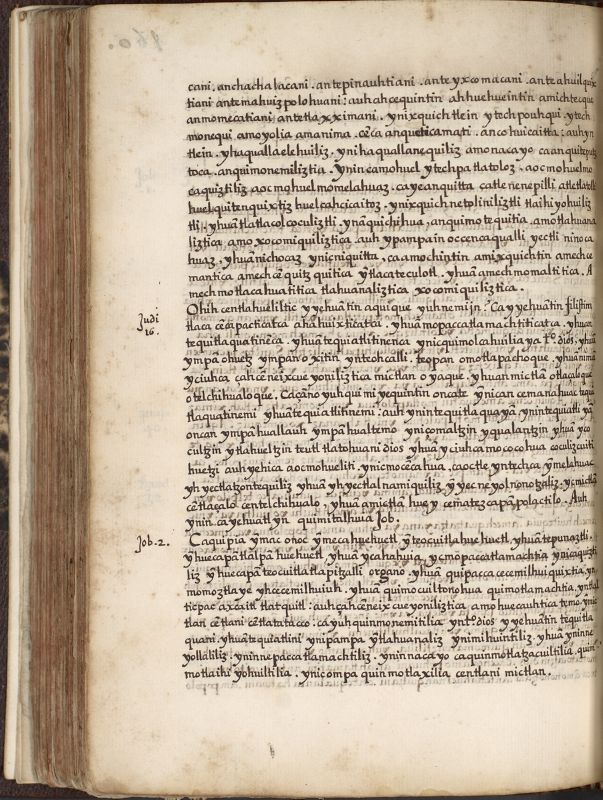 cani. anchachalacani. antepinauhtiani. anteyxcomacani. anteahuilquix
tiani antemahuizpolohuani: auh ah cequintin ahhuehueintin amichtecque
anmomecatiani antetlaxximani. ynixquich tlein ytech pouhqui ytech
monequi amoyolia amanima. cẽca anqueticamati. ancohuicaitta: auh yn
tlein. yhaquallaelehuiliz. ynihaquallanequiliz amonacayo caanquitepotz
toca. anquimonemiliztia. Ynin camohuel ytechpatlatoloz. aocmohuelmo
caquiztiliz aocmohuelmomelahuaz. cayeanquitta catle nenepilli atletlatolli
huel quitenquixtiz huelcahcicaitoz. ynixquich netoliniliztli tlaihiyohuiliz
tli. yhuã tlatlacolcocoliztli. ynaquichihua, anquimotequitia. amotlahuana
liztica amoxocomiquiliztica. auh ypampain occencaqualli yectli ninoca
huaz. yhuanichocaz ynicniquitta, caamochintin amixquichtin amechce
mantica amechcẽquitzquitica ytlacatecolotl. yhuã amechmomaltitica. A
mechmotlacahuatitica tlahuanaliztica xocomiquiliztica.
Ohih centlahueliltic yyehuãtin aquique yuhnemijn? Ca yyehuãtin filistim
tlaca cẽca pacticatca ahahuixticatca. yhuã mopaccatlamachtiticatca. yhuan
tequitlaquatineca. yhuã tequiatlitinenca ynicquimolcahuilia yatto. dios, yhuã
ympã ohuetz ympan oxitin ynteohcalli. teopan omotlapachoque. yhuã nima
yciuhca cahcẽneixcueyoniliztica mictlan oyaque. yhuan mictlã otlacalaque
otelchihualoque. Cacãno yuhquimiyequintin oncate ynican cemanahuac tequi
tlaquatinemi yhuã tequiatlitinemi: auh yninteqitlaquaya yninteq́uatli yã
oncan ympãhuallauh ympãhualtemo ynicomaltzin yqualantzin yhuã yco
cultzin ytlahueltzin teutl tlatohuani dios yhuã yciuhcamococohua coculizcuiti
huetzi auhyehica aocmohueliti. ynicmocẽcahua, caoctle yntechca ymelahuac
yh yectlatzontequiliz yhuã yh yectlalnamiquiliz yyecneyolnonotzaliz. ycmictlã
cẽtlaçalo centelchihualo, yhuã amictlã hueycematezcapã polactilo. Auh
ynin. ca yehuatl yn quimitalhuia Job.
Caquipia ymac onoc ymecahuehuetl yteocuitlahuehuetl, yhuã tepunaztli.
yhuecapãtlalpã huehuetl yhuã ycahahuia, ycmopaccatlamachtia ynicaquizti
liz yhuecapã teocuitlatlapitzalli organo. yhuã quipaccacecemilhuiquixtia, yn
momoztlaye yhcecemilhuiuh. yhuã quimocuiltonohua quimotlamachtia, yntlal
ticpac axcaitl tlatquitl: auh cahcẽneixcueyoniliztica amohuecauhtica temo, ynmic
tlan cẽtlani cẽtlatatacco: cayuhquinmonemitilia yntto. dios yyehuãtin tequitla
quani. yhuã tequiatlini ynipampa ytlahuanaliz ynimihuintiliz. yhuã yninne
yollaliliz. yninnepaccatlamachtiliz. yninnacayo caquinmotlatzacuiltilia. quin
motlaihiyohuiltilia. ynicompa quinmotlaxilia centlani mictlan.
Judi
16.
Job. 2.